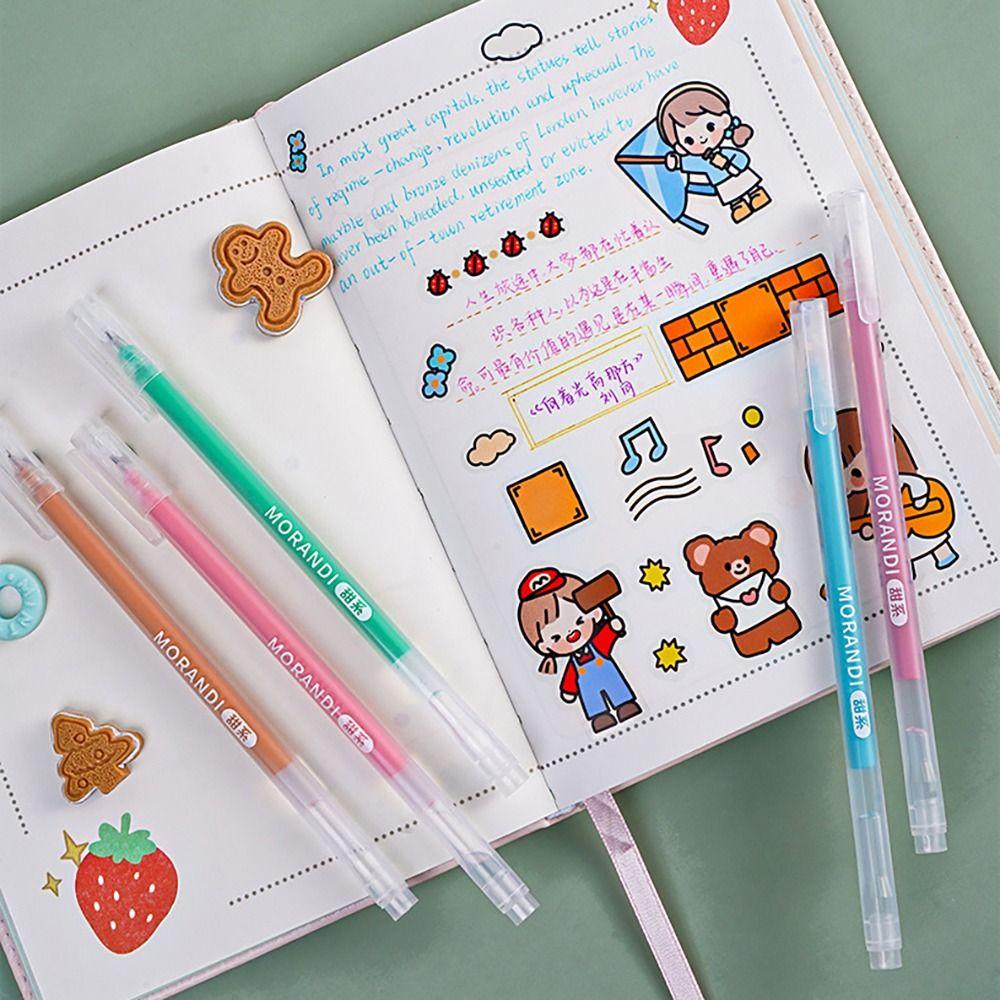 In most great capitals, the statues tell stories
of regime-change, revolution and upheaval. The
marble and bronze denizens of London however have
ever been beheaded, unseated or evicted to
an out-of-town retirement zone.
人生旅途中,大家都在忙着认
识各种人,以为这是在丰富生
命。可最有价值的遇见,是在某一瞬间,重遇了自己。
《向着光亮那方》
刘同
MORANDI 甜系
MORANDI 甜系
MORANDI 甜系
MORANDI 甜系
MORANDI 甜系
M